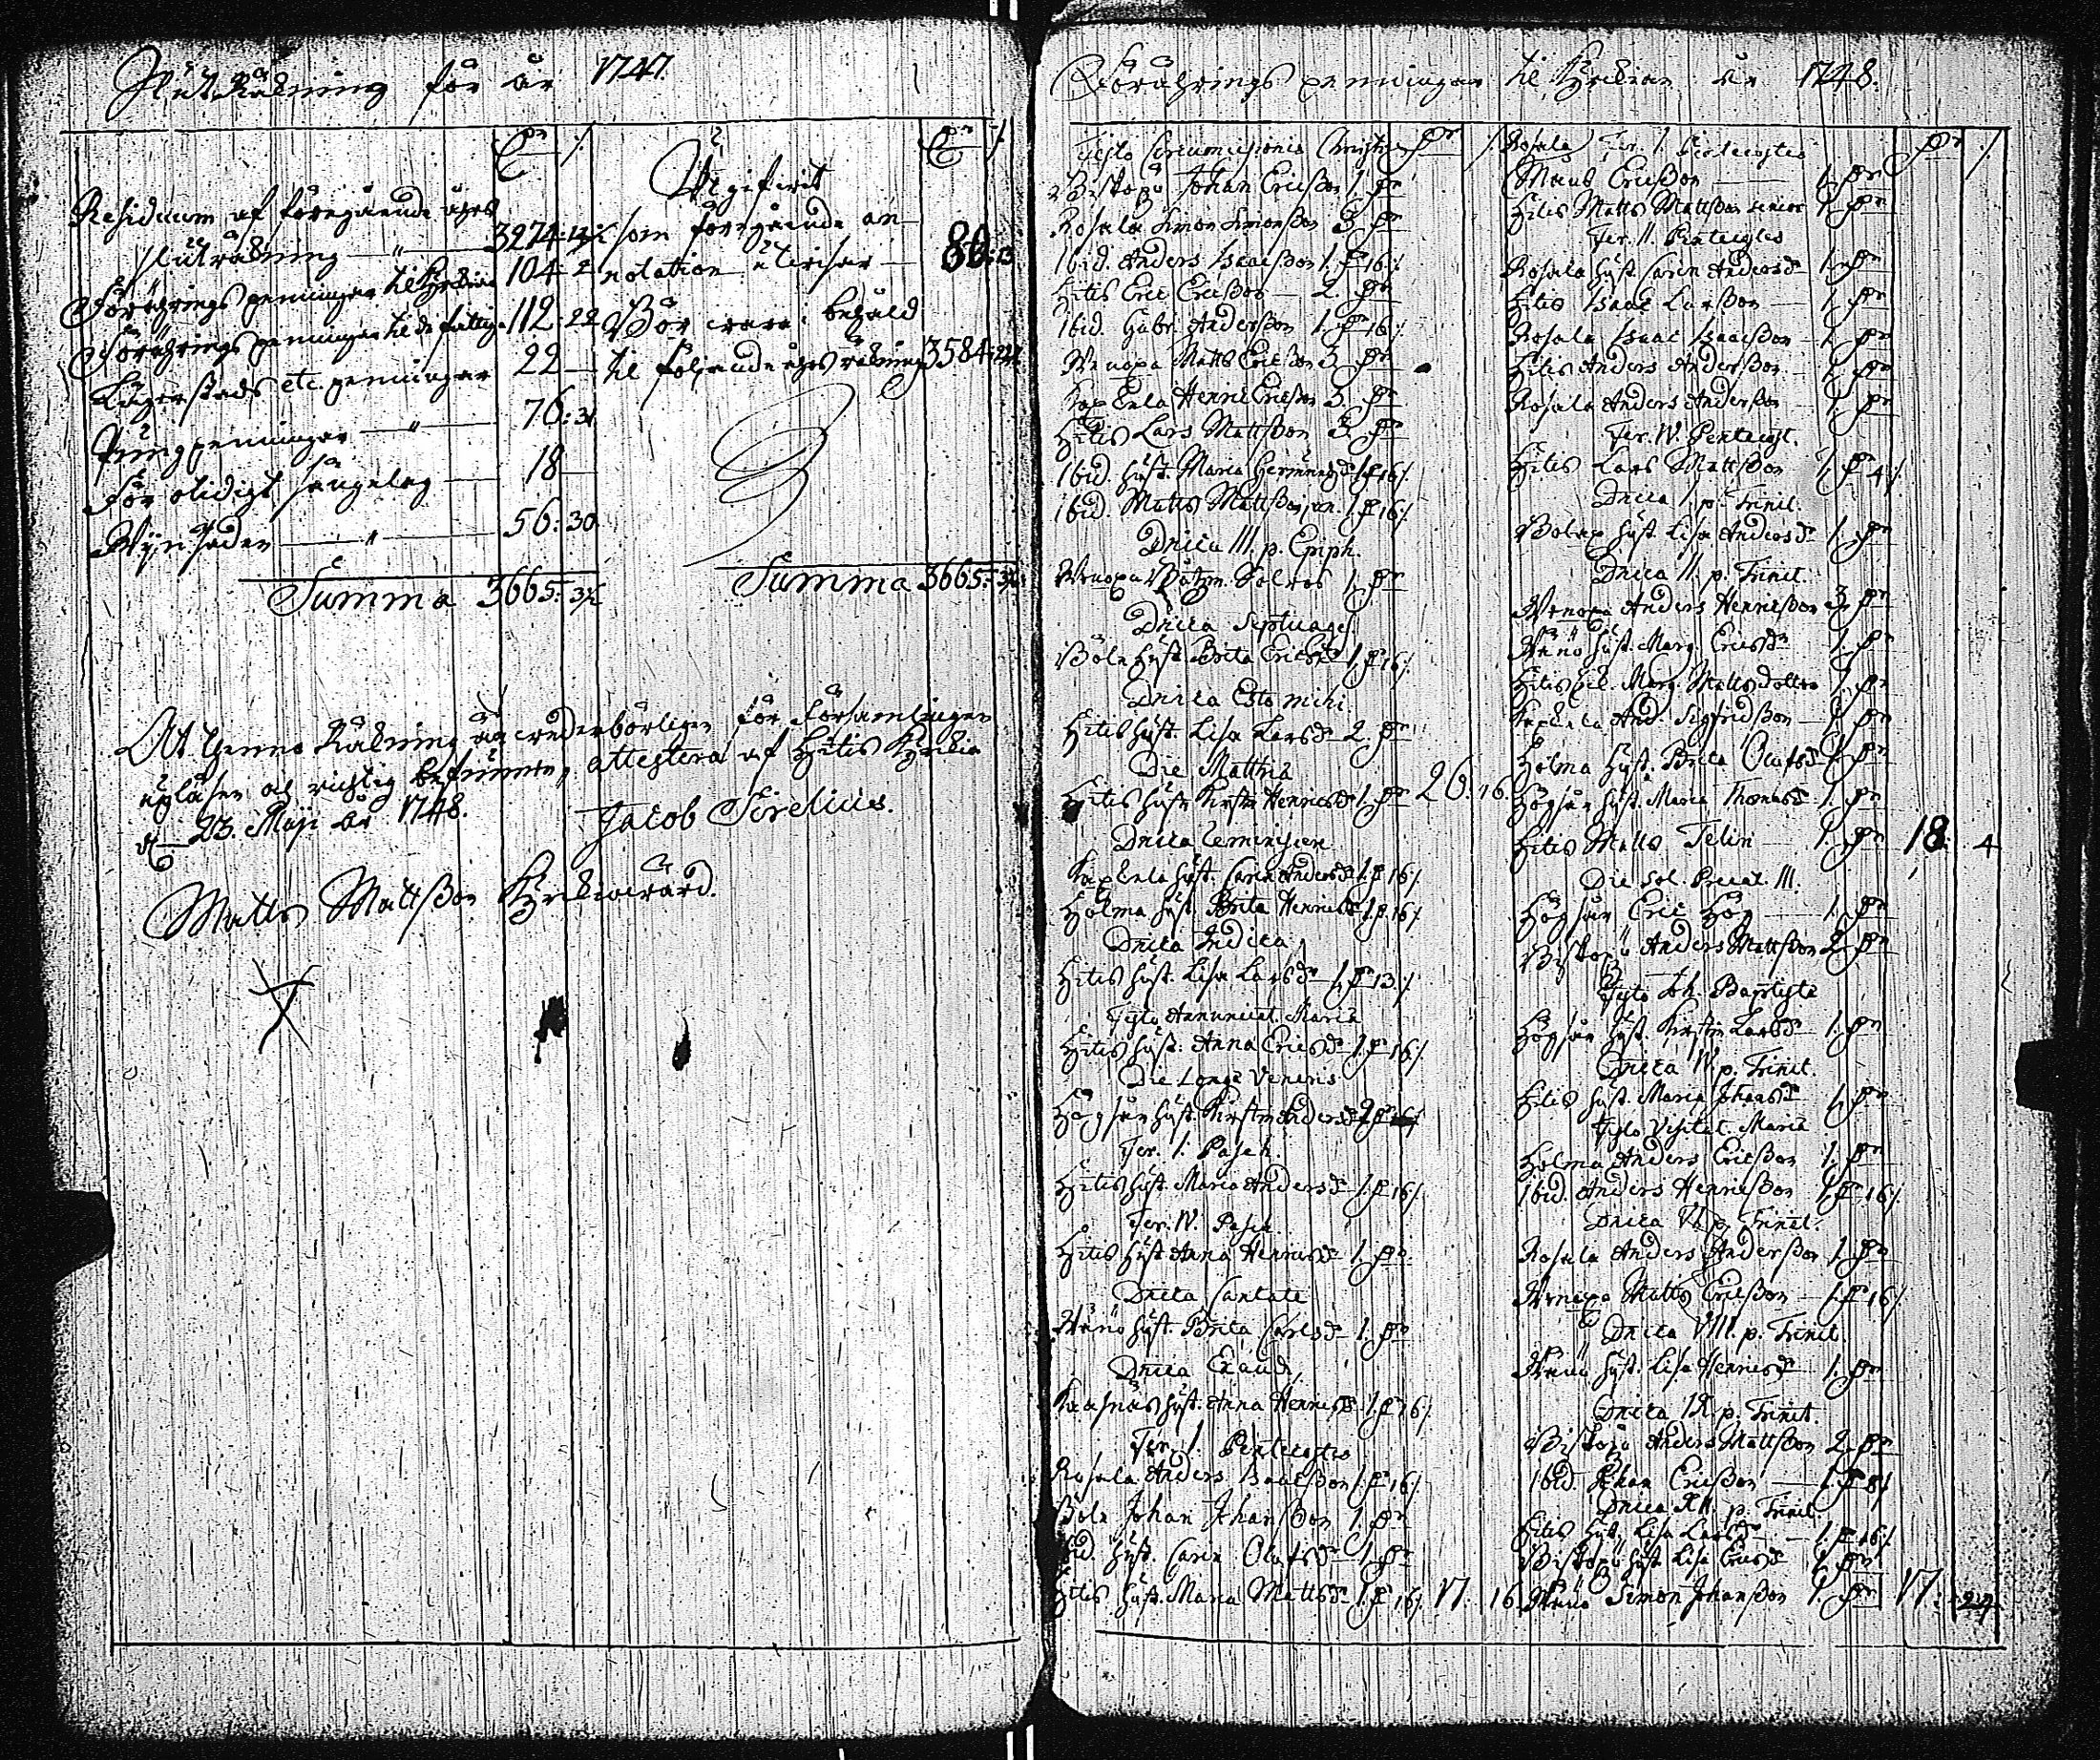 Slut Räkning för år 1747.
Residuum af föregående åhrs
sluträkning — " — 3274:
Förährings penningar til Kyrkian 104: 2
Förährings penningar til de fattiga 112: 22
Lägerstads etc penningar 22 —
Pung penningar — " — 76: 31
För otidigt sängelag — 18 —
Wijn saden — " — 56: 30
Summa 3665: 3½
Utgifwit
som föregående an-
notation utwisar —
Bör wara i behåld
til följande åhrs räkning 3584:
Summa 3665: 3½
At denna Räkning är wederbörligen för Församlingen
upläsen och richtig befunnen, attesterar af Hitis Kyrkia
d. 23 Maji år 1748. Jacob Sirelius.
Matts Mattßon Kyrkiowärd.
Förährings penningar til Kyrkian år 1748.
Festo Circumcisionis Christi
Biskopö Johan Ericßon 1.
Rosala Simon Simonßon 3.
Ibid. Anders Isaacßon 1. 16
Hitis Eric Ericßon — 2.
Ibid. Gabr. Anderßon 1. 16
Wenoxa Matts Ericßon 3.
Enla Henric Ericßon 3.
Hitis Lars Mattßon 3.
Ibid. hust. Maria 1. 16
Ibid. Matts Mattßon jun. 1. 16
Dnica III. p. Epiph.
Wenoxa Båtzm. 1.
Dnica Septuages.
Böle hust. Brita Ericsd. 1. 16
Dnica Esto mihi.
Hitis hust. Lisa Larsd. 2.
Die Matthiæ
Hitis hust. Kirstin Henricsd. 1. 26. 16.
Dnica Reminiscere
hust. Carin Andersd. 1. 16
Holma hust. Brita Henricsd. 1. 16
Dnica Judica
Hitis hust. Lisa Larsd. 1. 13
Festo Annunciat. Mariæ
Hitis hust. Anna Ericsd. 1. 16
Die Longæ Veneris
Högsår hust. Kirstin Andersd. 2
Fer. I. Pasch.
Hitis hust. Maria Andersd. 1. 16
Fer. IV. Pasch.
Hitis hust. Anna Henricsd. 1.
Dnica Cantate
Wänö hust. Brita Carlsd. 1.
Dnica Exaudi
hust. Anna Henricsd. 1. 16
Fer. I. Pentecostes
Rosala Anders Isaacßon 1. 16
Böle Johan Johanßon 1.
Ibid. hust. Carin Olofsd. 1.
Hitis hust. Maria Mattsd. 1. 16 17. 16
Rosala Fer. I. Pentecostes
Måns Ericßon — 1.
Hitis Matts Mattßon senior 1.
Fer. II. Pentecostes
Rosala hust. Carin Andersd. 1.
Hitis Isaac Larßon — 1.
Rosala Isaac Isaacßon — 1.
Hitis Anders Anderßon 1.
Rosala Anders Anderßon 1.
Fer. IV. Pentecost.
Hitis Lars Mattßon 1. 4
Dnica I. p. Trinit.
hust. Lisa Andersd. 1.
Dnica II. p. Trinit.
Wenoxa Anders Henricßon 3.
Wänö hust. Marg. Ericsd. 1.
Hitis Marg. Mattsdotter 1.
And. Sigfredßon — 1.
Holma hust. Brita Olofsd. 1.
Högsår hust. Maria Thomasd. 1.
Hitis Matts Telin — 1. 18. 4
Die Sol. Precat. III.
Högsår Eric Hög — 1.
Biskopö Anders Mattßon 2.
Festo Joh. Baptistæ
Högsår hust. Kirstin Larsd. 1.
Dnica IV. p. Trinit.
Hitis hust. Maria Johansd. 1.
Festo Visitat. Mariæ
Holma Anders Ericßon 1.
Ibid. Anders Henricßon 1. 16
Dnica VI. p. Trinit.
Rosala Anders Anderßon 1.
Wenoxa Matts Ericßon — 1. 16
Dnica VIII. p. Trinit.
Wänö hust. Lisa Henricsd. 1.
Dnica IX. p. Trinit.
Biskopö Anders Mattßon 2.
Ibid. Johan Ericßon — 1. 8
Dnica XII. p. Trinit.
Hitis hust. Lisa Larsd. — 1. 16
Biskopö hust. Lisa Ericsd. 1.
Wänö Simon Johanßon 1. 17.